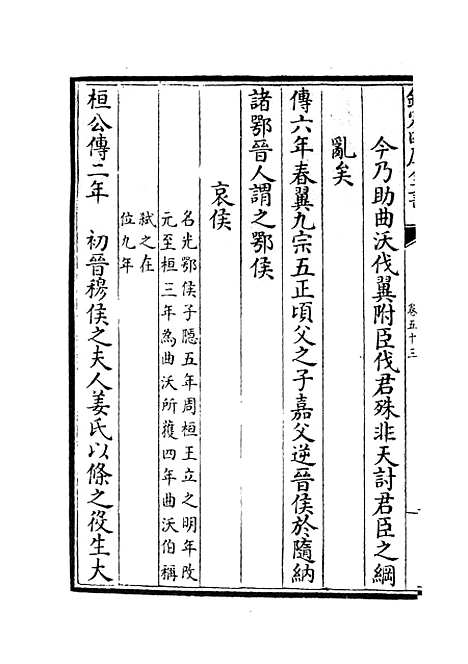 今乃助曲沃伐翼附臣伐君殊非天討君臣之綱
亂矣
傳六年春翼九宗五正頃父之子嘉父逆晉侯於隨納
諸鄂晉人謂之鄂侯
哀侯
名光鄂侯子隱五年周桓王立之明年改
元至桓三年為曲沃所獲四年曲沃伯稱
弑之在
位九年
桓公傳二年　初晉穆侯之夫人姜氏以條之役生大
卷五十三